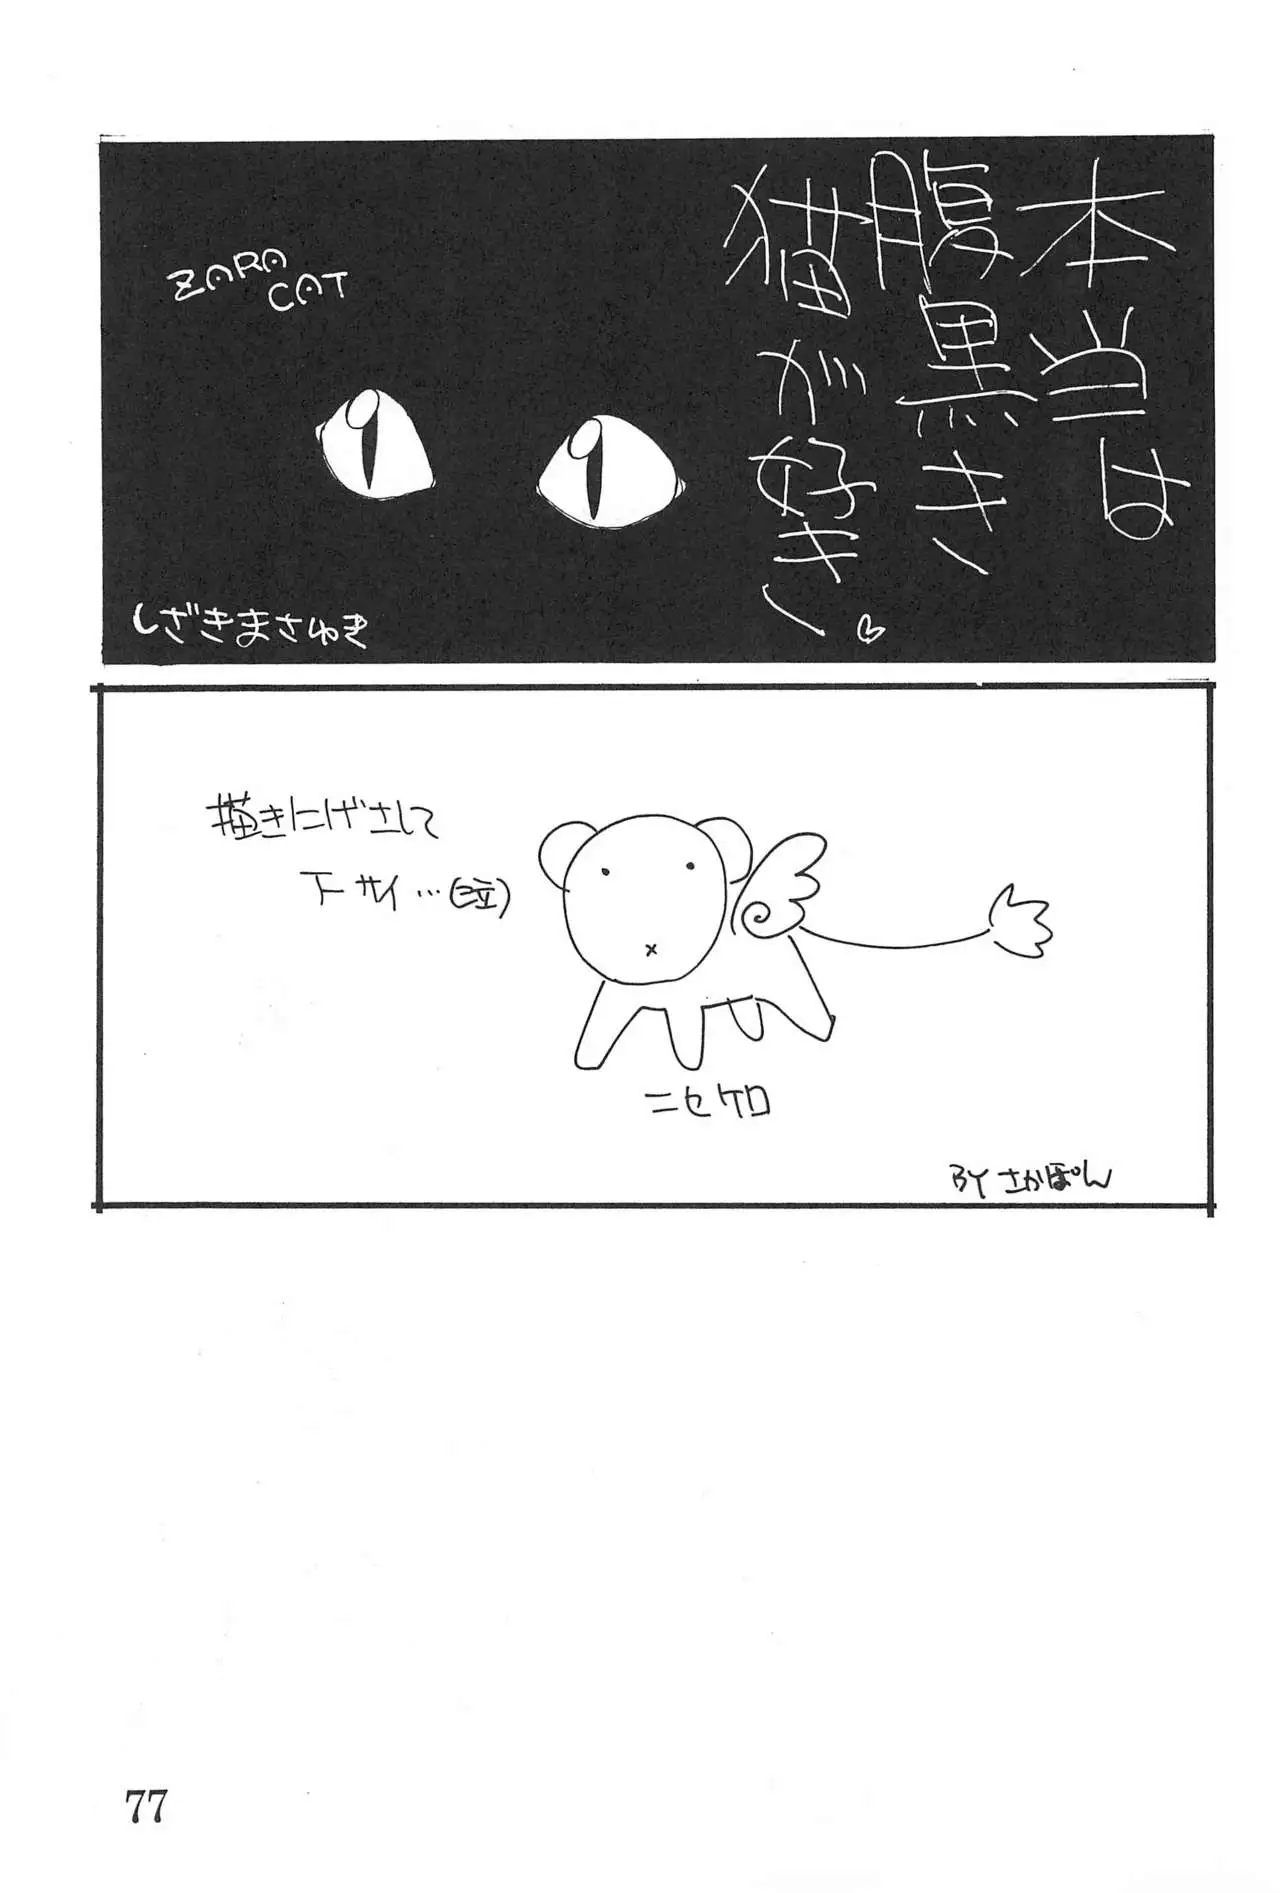 本当は
腹黒き
猫が好き
ZARA
CAT
しざきまさゆき
描きにげさして
下サイ…(泣)
ニセケロ
BY さかぽん
77